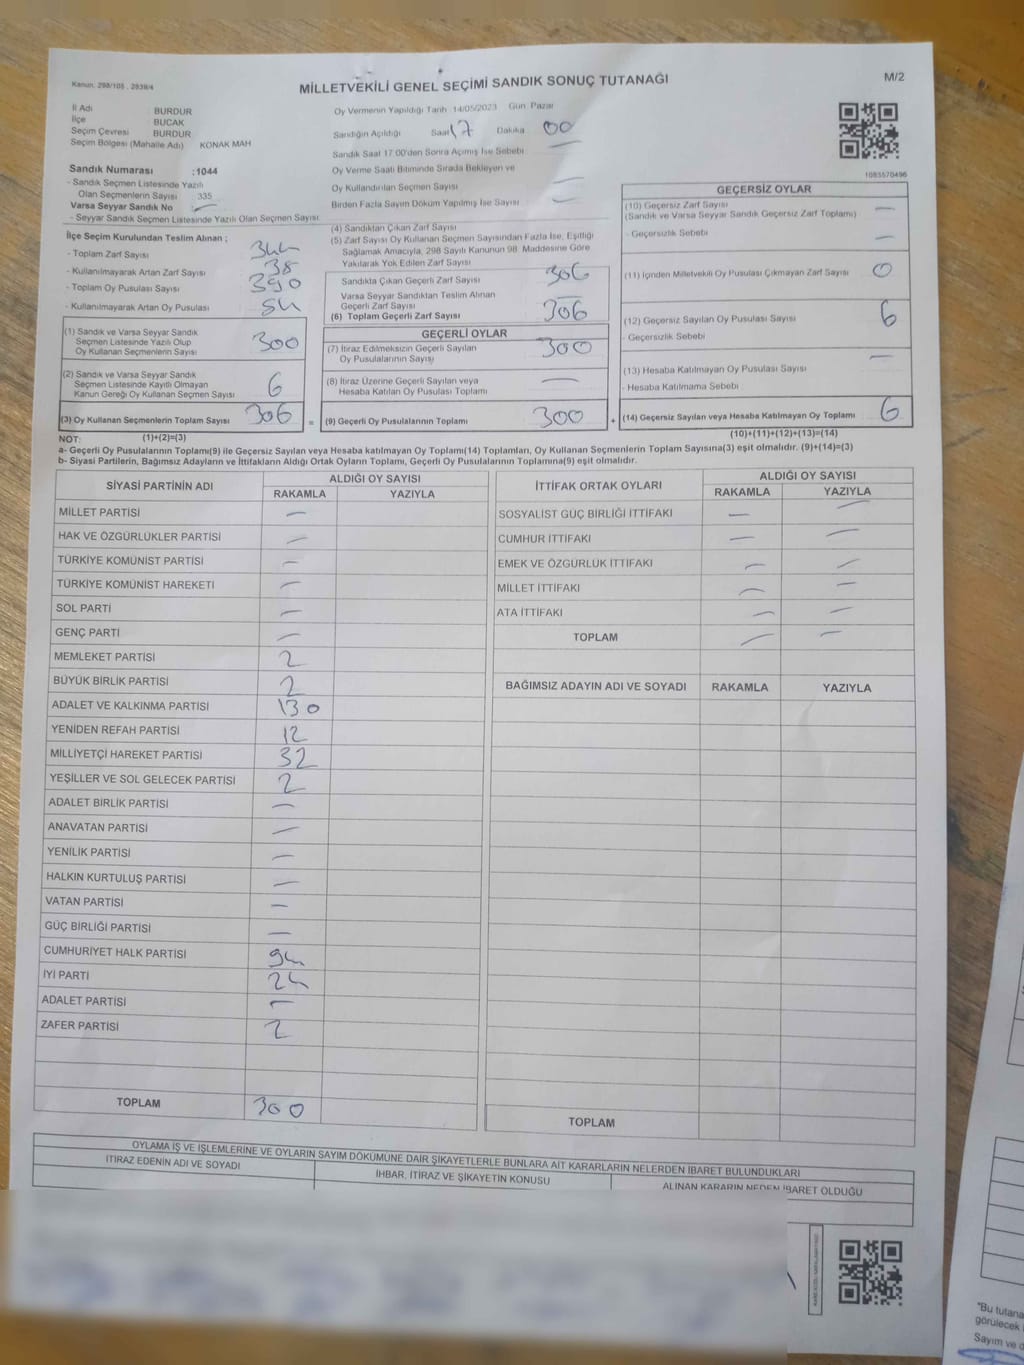 Kanun. 298/105 , 2839/4
MİLLETVEKİLİ GENEL SEÇİMİ SANDIK SONUÇ TUTANAĞI
M/2
İl Adı BURDUR
İlçe BUCAK
Seçim Çevresi BURDUR
Seçim Bölgesi (Mahalle Adı) KONAK MAH
Sandık Numarası :1044
- Sandık Seçmen Listesinde Yazılı
Olan Seçmenlerin Sayısı 335
Varsa Seyyar Sandık No —
- Seyyar Sandık Seçmen Listesinde Yazılı Olan Seçmen Sayısı
Oy Vermenin Yapıldığı Tarih 14/05/2023 Gün Pazar
Sandığın Açıldığı Saat 17 Dakika 00
Sandık Saat 17:00'den Sonra Açılmış İse Sebebi —
Oy Verme Saati Bitiminde Sırada Bekleyen ve
Oy Kullandırılan Seçmen Sayısı —
Birden Fazla Sayım Döküm Yapılmış İse Sayısı —
1083570496
İlçe Seçim Kurulundan Teslim Alınan ;
- Toplam Zarf Sayısı 344
- Kullanılmayarak Artan Zarf Sayısı 38
- Toplam Oy Pusulası Sayısı 390
- Kullanılmayarak Artan Oy Pusulası 84
(1) Sandık ve Varsa Seyyar Sandık
Seçmen Listesinde Yazılı Olup
Oy Kullanan Seçmenlerin Sayısı 300
(2) Sandık ve Varsa Seyyar Sandık
Seçmen Listesinde Kayıtlı Olmayan
Kanun Gereği Oy Kullanan Seçmen Sayısı 6
(3) Oy Kullanan Seçmenlerin Toplam Sayısı 306
(4) Sandıktan Çıkan Zarf Sayısı
(5) Zarf Sayısı Oy Kullanan Seçmen Sayısından Fazla İse, Eşitliği
Sağlamak Amacıyla, 298 Sayılı Kanunun 98. Maddesine Göre
Yakılarak Yok Edilen Zarf Sayısı
Sandıkta Çıkan Geçerli Zarf Sayısı 306
Varsa Seyyar Sandıktan Teslim Alınan
Geçerli Zarf Sayısı —
(6) Toplam Geçerli Zarf Sayısı 306
GEÇERLİ OYLAR
(7) İtiraz Edilmeksizin Geçerli Sayılan
Oy Pusulalarının Sayısı 300
(8) İtiraz Üzerine Geçerli Sayılan veya
Hesaba Katılan Oy Pusulası Toplamı —
= (9) Geçerli Oy Pusulalarının Toplamı 300
GEÇERSİZ OYLAR
(10) Geçersiz Zarf Sayısı —
(Sandık ve Varsa Seyyar Sandık Geçersiz Zarf Toplamı)
- Geçersizlik Sebebi —
(11) İçinden Milletvekili Oy Pusulası Çıkmayan Zarf Sayısı 0
(12) Geçersiz Sayılan Oy Pusulası Sayısı 6
- Geçersizlik Sebebi
(13) Hesaba Katılmayan Oy Pusulası Sayısı —
- Hesaba Katılmama Sebebi
+ (14) Geçersiz Sayılan veya Hesaba Katılmayan Oy Toplamı 6
NOT: (1)+(2)=(3)
(10)+(11)+(12)+(13)=(14)
a- Geçerli Oy Pusulalarının Toplamı(9) ile Geçersiz Sayılan veya Hesaba katılmayan Oy Toplamı(14) Toplamları, Oy Kullanan Seçmenlerin Toplam Sayısına(3) eşit olmalıdır. (9)+(14)=(3)
b- Siyasi Partilerin, Bağımsız Adayların ve İttifakların Aldığı Ortak Oyların Toplamı, Geçerli Oy Pusulalarının Toplamına(9) eşit olmalıdır.
SİYASİ PARTİNİN ADI
ALDIĞI OY SAYISI
RAKAMLA YAZIYLA
MİLLET PARTİSİ —
HAK VE ÖZGÜRLÜKLER PARTİSİ —
TÜRKİYE KOMÜNİST PARTİSİ —
TÜRKİYE KOMÜNİST HAREKETİ —
SOL PARTİ —
GENÇ PARTİ —
MEMLEKET PARTİSİ 2
BÜYÜK BİRLİK PARTİSİ 2
ADALET VE KALKINMA PARTİSİ 130
YENİDEN REFAH PARTİSİ 12
MİLLİYETÇİ HAREKET PARTİSİ 32
YEŞİLLER VE SOL GELECEK PARTİSİ 2
ADALET BİRLİK PARTİSİ —
ANAVATAN PARTİSİ —
YENİLİK PARTİSİ —
HALKIN KURTULUŞ PARTİSİ —
VATAN PARTİSİ —
GÜÇ BİRLİĞİ PARTİSİ —
CUMHURİYET HALK PARTİSİ 94
İYİ PARTİ 24
ADALET PARTİSİ —
ZAFER PARTİSİ 2
TOPLAM 300
İTTİFAK ORTAK OYLARI
ALDIĞI OY SAYISI
RAKAMLA YAZIYLA
SOSYALİST GÜÇ BİRLİĞİ İTTİFAKI — —
CUMHUR İTTİFAKI — —
EMEK VE ÖZGÜRLÜK İTTİFAKI — —
MİLLET İTTİFAKI — —
ATA İTTİFAKI — —
TOPLAM — —
BAĞIMSIZ ADAYIN ADI VE SOYADI RAKAMLA YAZIYLA
TOPLAM
OYLAMA İŞ VE İŞLEMLERİNE VE OYLARIN SAYIM DÖKÜMÜNE DAİR ŞİKAYETLERLE BUNLARA AİT KARARLARIN NELERDEN İBARET BULUNDUKLARI
İTİRAZ EDENİN ADI VE SOYADI
İHBAR, İTİRAZ VE ŞİKAYETİN KONUSU
ALINAN KARARIN NEDEN İBARET OLDUĞU
"Bu tutana
görülecek
Sayım ve d